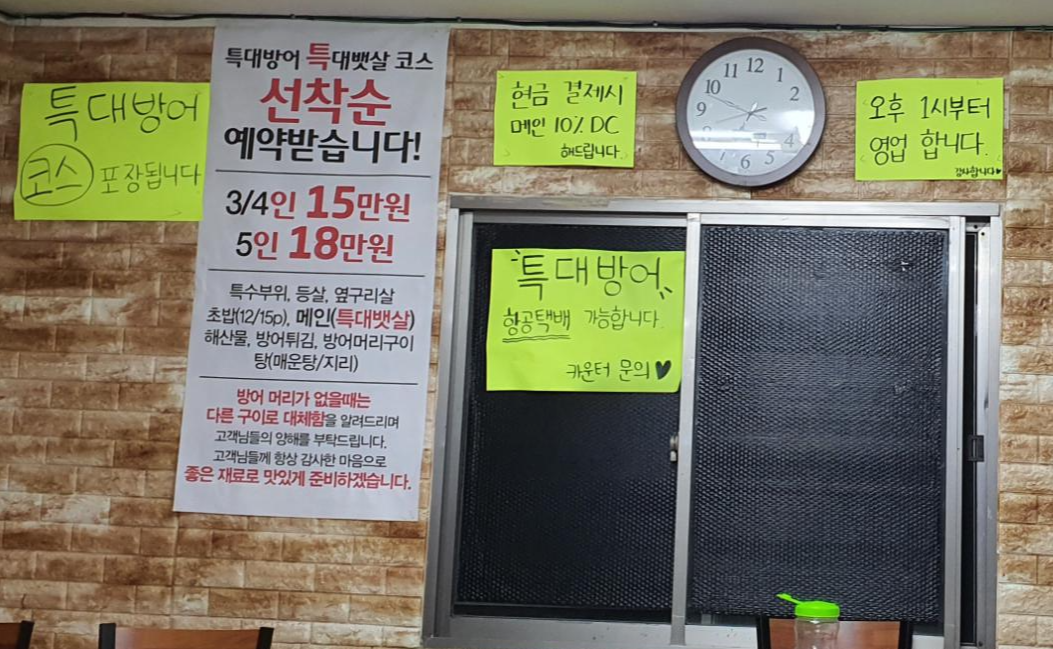 특대방어
코스 포장됩니다
특대방어 특대뱃살 코스
선착순
예약받습니다!
3/4인 15만원
5인 18만원
특수부위, 등살, 옆구리살
초밥(12/15p), 메인(특대뱃살)
해산물, 방어튀김, 방어머리구이
탕(매운탕/지리)
방어 머리가 없을때는
다른 구이로 대체함을 알려드리며
고객님들의 양해를 부탁드립니다.
고객님들께 항상 감사한 마음으로
좋은 재료로 맛있게 준비하겠습니다.
현금 결제시
메인 10% DC
해드립니다.
12
11 1
10 2
9
8
7 5
6
오후 1시부터
영업 합니다.
감사합니다♥
"특대방어"
항공택배 가능합니다.
카운터 문의♥